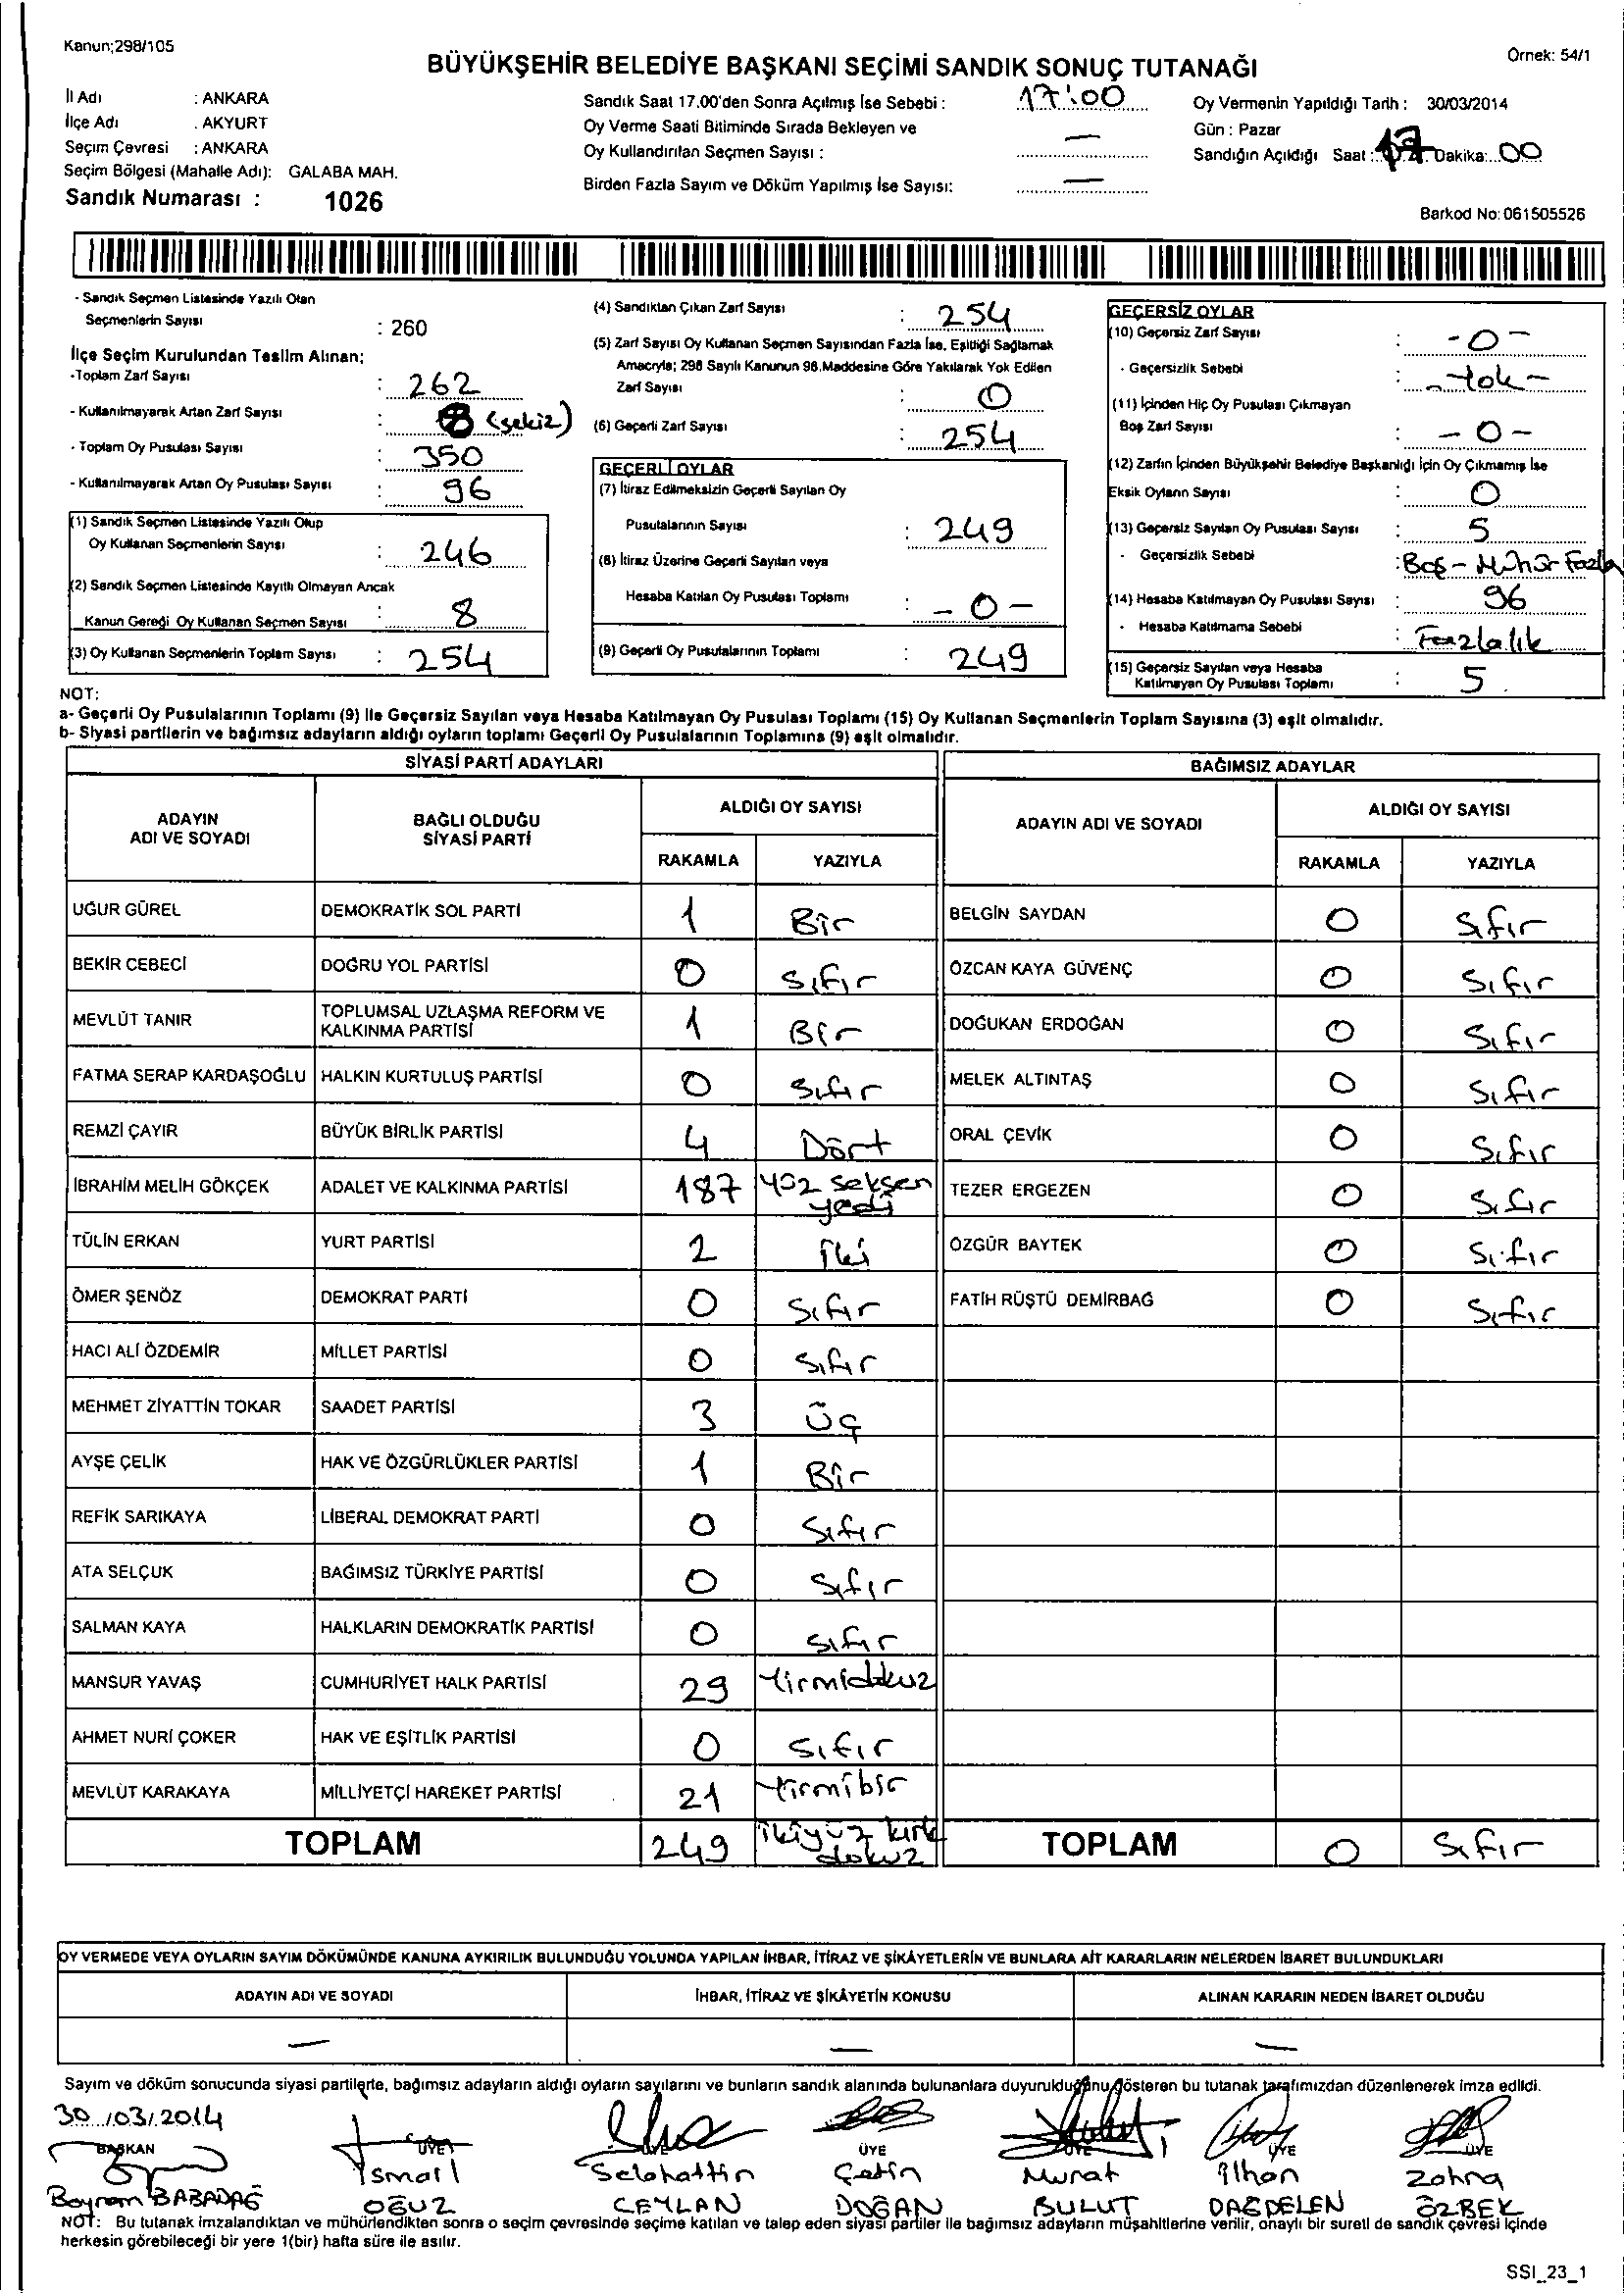 Kanun;298/105
Örnek: 54/1
BÜYÜKŞEHİR BELEDİYE BAŞKANI SEÇİMİ SANDIK SONUÇ TUTANAĞI
İl Adı : ANKARA
İlçe Adı . AKYURT
Seçim Çevresi : ANKARA
Seçim Bölgesi (Mahalle Adı): GALABA MAH.
Sandık Numarası : 1026
Sandık Saat 17.00'den Sonra Açılmış İse Sebebi : 17:00
Oy Verme Saati Bitiminde Sırada Bekleyen ve
Oy Kullandırılan Seçmen Sayısı : —
Birden Fazla Sayım ve Döküm Yapılmış İse Sayısı: —
Oy Vermenin Yapıldığı Tarih : 30/03/2014
Gün : Pazar
Sandığın Açıldığı Saat : 17 Dakika: 00
Barkod No: 061505526
- Sandık Seçmen Listesinde Yazılı Olan
Seçmenlerin Sayısı : 260
İlçe Seçim Kurulundan Teslim Alınan;
-Toplam Zarf Sayısı : 262
- Kullanılmayarak Artan Zarf Sayısı : 8 (sekiz)
- Toplam Oy Pusulası Sayısı : 350
- Kullanılmayarak Artan Oy Pusulası Sayısı : 96
(1) Sandık Seçmen Listesinde Yazılı Olup
Oy Kullanan Seçmenlerin Sayısı : 246
(2) Sandık Seçmen Listesinde Kayıtlı Olmayan Ancak
Kanun Gereği Oy Kullanan Seçmen Sayısı : 8
(3) Oy Kullanan Seçmenlerin Toplam Sayısı : 254
(4) Sandıktan Çıkan Zarf Sayısı : 254
(5) Zarf Sayısı Oy Kullanan Seçmen Sayısından Fazla İse, Eşitliği Sağlamak
Amacıyla; 298 Sayılı Kanunun 98.Maddesine Göre Yakılarak Yok Edilen
Zarf Sayısı : 0
(6) Geçerli Zarf Sayısı : 254
GEÇERLİ OYLAR
(7) İtiraz Edilmeksizin Geçerli Sayılan Oy
Pusulalarının Sayısı : 249
(8) İtiraz Üzerine Geçerli Sayılan veya
Hesaba Katılan Oy Pusulası Toplamı : - 0 -
(9) Geçerli Oy Pusulalarının Toplamı : 249
GEÇERSİZ OYLAR
(10) Geçersiz Zarf Sayısı : - 0 -
- Geçersizlik Sebebi : - Yok -
(11) İçinden Hiç Oy Pusulası Çıkmayan
Boş Zarf Sayısı : - 0 -
(12) Zarfın İçinden Büyükşehir Belediye Başkanlığı İçin Oy Çıkmamış İse
Eksik Oyların Sayısı : 0
(13) Geçersiz Sayılan Oy Pusulası Sayısı : 5
- Geçersizlik Sebebi : Boş - Mühür Fazla
(14) Hesaba Katılmayan Oy Pusulası Sayısı : 96
- Hesaba Katılmama Sebebi : Fazlalık
(15) Geçersiz Sayılan veya Hesaba
Katılmayan Oy Pusulası Toplamı : 5
NOT:
a- Geçerli Oy Pusulalarının Toplamı (9) ile Geçersiz Sayılan veya Hesaba Katılmayan Oy Pusulası Toplamı (15) Oy Kullanan Seçmenlerin Toplam Sayısına (3) eşit olmalıdır.
b- Siyasi partilerin ve bağımsız adayların aldığı oyların toplamı Geçerli Oy Pusulalarının Toplamına (9) eşit olmalıdır.
SİYASİ PARTİ ADAYLARI
BAĞIMSIZ ADAYLAR
ADAYIN ADI VE SOYADI BAĞLI OLDUĞU SİYASİ PARTİ ALDIĞI OY SAYISI ADAYIN ADI VE SOYADI ALDIĞI OY SAYISI
RAKAMLA YAZIYLA RAKAMLA YAZIYLA
UĞUR GÜREL DEMOKRATİK SOL PARTİ 1 Bir BELGİN SAYDAN 0 Sıfır
BEKİR CEBECİ DOĞRU YOL PARTİSİ 0 Sıfır ÖZCAN KAYA GÜVENÇ 0 Sıfır
MEVLÜT TANIR TOPLUMSAL UZLAŞMA REFORM VE KALKINMA PARTİSİ 1 Bir DOĞUKAN ERDOĞAN 0 Sıfır
FATMA SERAP KARDAŞOĞLU HALKIN KURTULUŞ PARTİSİ 0 Sıfır MELEK ALTINTAŞ 0 Sıfır
REMZİ ÇAYIR BÜYÜK BİRLİK PARTİSİ 4 Dört ORAL ÇEVİK 0 Sıfır
İBRAHİM MELİH GÖKÇEK ADALET VE KALKINMA PARTİSİ 187 yüz seksen yedi TEZER ERGEZEN 0 Sıfır
TÜLİN ERKAN YURT PARTİSİ 2 İki ÖZGÜR BAYTEK 0 Sıfır
ÖMER ŞENÖZ DEMOKRAT PARTİ 0 Sıfır FATİH RÜŞTÜ DEMİRBAĞ 0 Sıfır
HACI ALİ ÖZDEMİR MİLLET PARTİSİ 0 Sıfır
MEHMET ZİYATTİN TOKAR SAADET PARTİSİ 3 Üç
AYŞE ÇELİK HAK VE ÖZGÜRLÜKLER PARTİSİ 1 Bir
REFİK SARIKAYA LİBERAL DEMOKRAT PARTİ 0 Sıfır
ATA SELÇUK BAĞIMSIZ TÜRKİYE PARTİSİ 0 Sıfır
SALMAN KAYA HALKLARIN DEMOKRATİK PARTİSİ 0 Sıfır
MANSUR YAVAŞ CUMHURİYET HALK PARTİSİ 29 Yirmidokuz
AHMET NURİ ÇOKER HAK VE EŞİTLİK PARTİSİ 0 Sıfır
MEVLÜT KARAKAYA MİLLİYETÇİ HAREKET PARTİSİ 21 Yirmibir
TOPLAM 249 ikiyüz kırk dokuz TOPLAM 0 Sıfır
OY VERMEDE VEYA OYLARIN SAYIM DÖKÜMÜNDE KANUNA AYKIRILIK BULUNDUĞU YOLUNDA YAPILAN İHBAR, İTİRAZ VE ŞİKÂYETLERİN VE BUNLARA AİT KARARLARIN NELERDEN İBARET BULUNDUKLARI
ADAYIN ADI VE SOYADI İHBAR, İTİRAZ VE ŞİKÂYETİN KONUSU ALINAN KARARIN NEDEN İBARET OLDUĞU
— — —
Sayım ve döküm sonucunda siyasi partilerle, bağımsız adayların aldığı oyların sayılarını ve bunların sandık alanında bulunanlara duyurulduğunu gösteren bu tutanak tarafımızdan düzenlenerek imza edildi.
30/03/2014
BAŞKAN ÜYE ÜYE ÜYE ÜYE ÜYE ÜYE
Bayram BABADAĞ İsmail OĞUZ Selahattin CEYLAN Çetin DOĞAN Murat BULUT İlhan DAĞDELEN Zohra ÖZBEK
NOT: Bu tutanak imzalandıktan ve mühürlendikten sonra o seçim çevresinde seçime katılan ve talep eden siyasi partiler ile bağımsız adayların müşahitlerine verilir, onaylı bir sureti de sandık çevresi içinde
herkesin görebileceği bir yere 1(bir) hafta süre ile asılır.
SSI_23_1